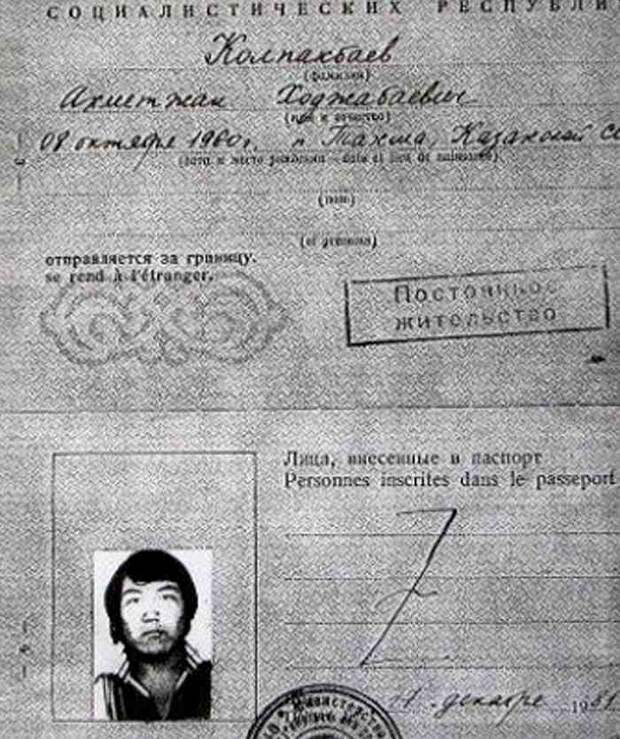 СОЦИАЛИСТИЧЕСКИХ РЕСПУБЛИ
Колпакбаев
(фамилия)
Ахметжан Ходжабаевич
(имя и отчество)
08 октября 1960г. п
(дата и место рождения - date et lieu de naissance)
(nom)
(et prénoms)
отправляется за границу.
se rend à l'étranger.
Постоянное
жительство
Лица, внесенные в паспорт
Personnes inscrites dans le passeport
декабря 1981
Министерство